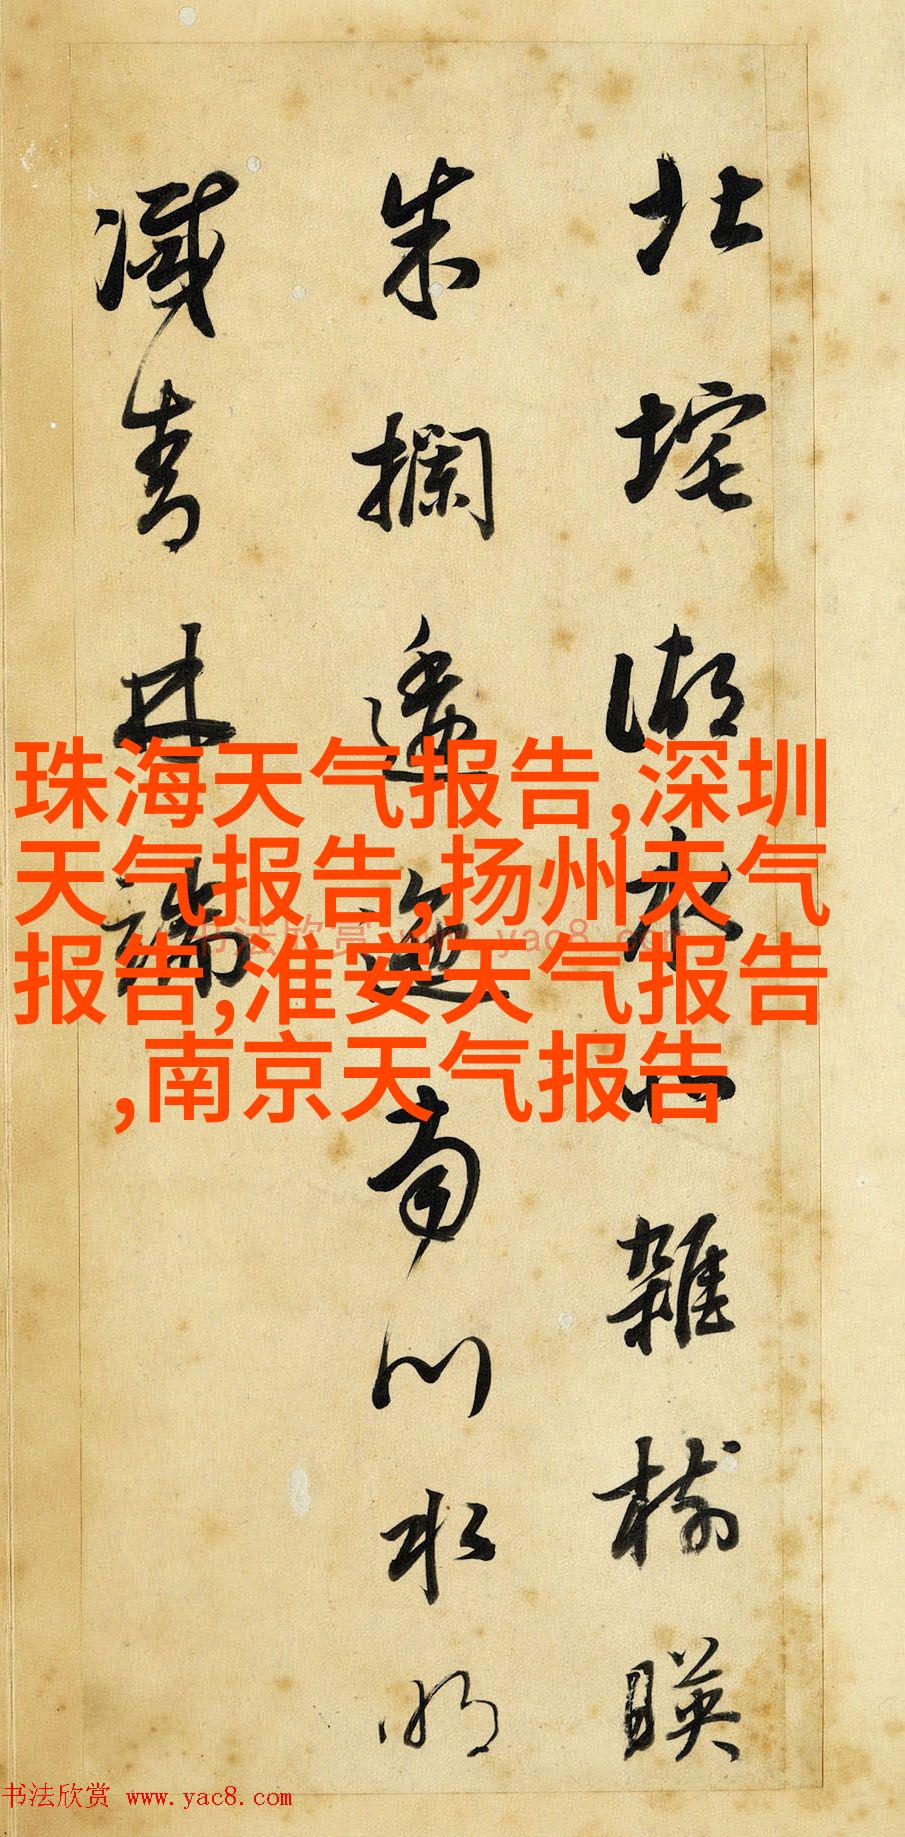 北垞湖水雜樹暎
朱欄逶迤南川水明
滅青林端
珠海天气报告,深圳
天气报告,扬州天气
报告,淮安天气报告
,南京天气报告
书法欣赏 www.yac8.com
书法欣赏 www.yac8.com